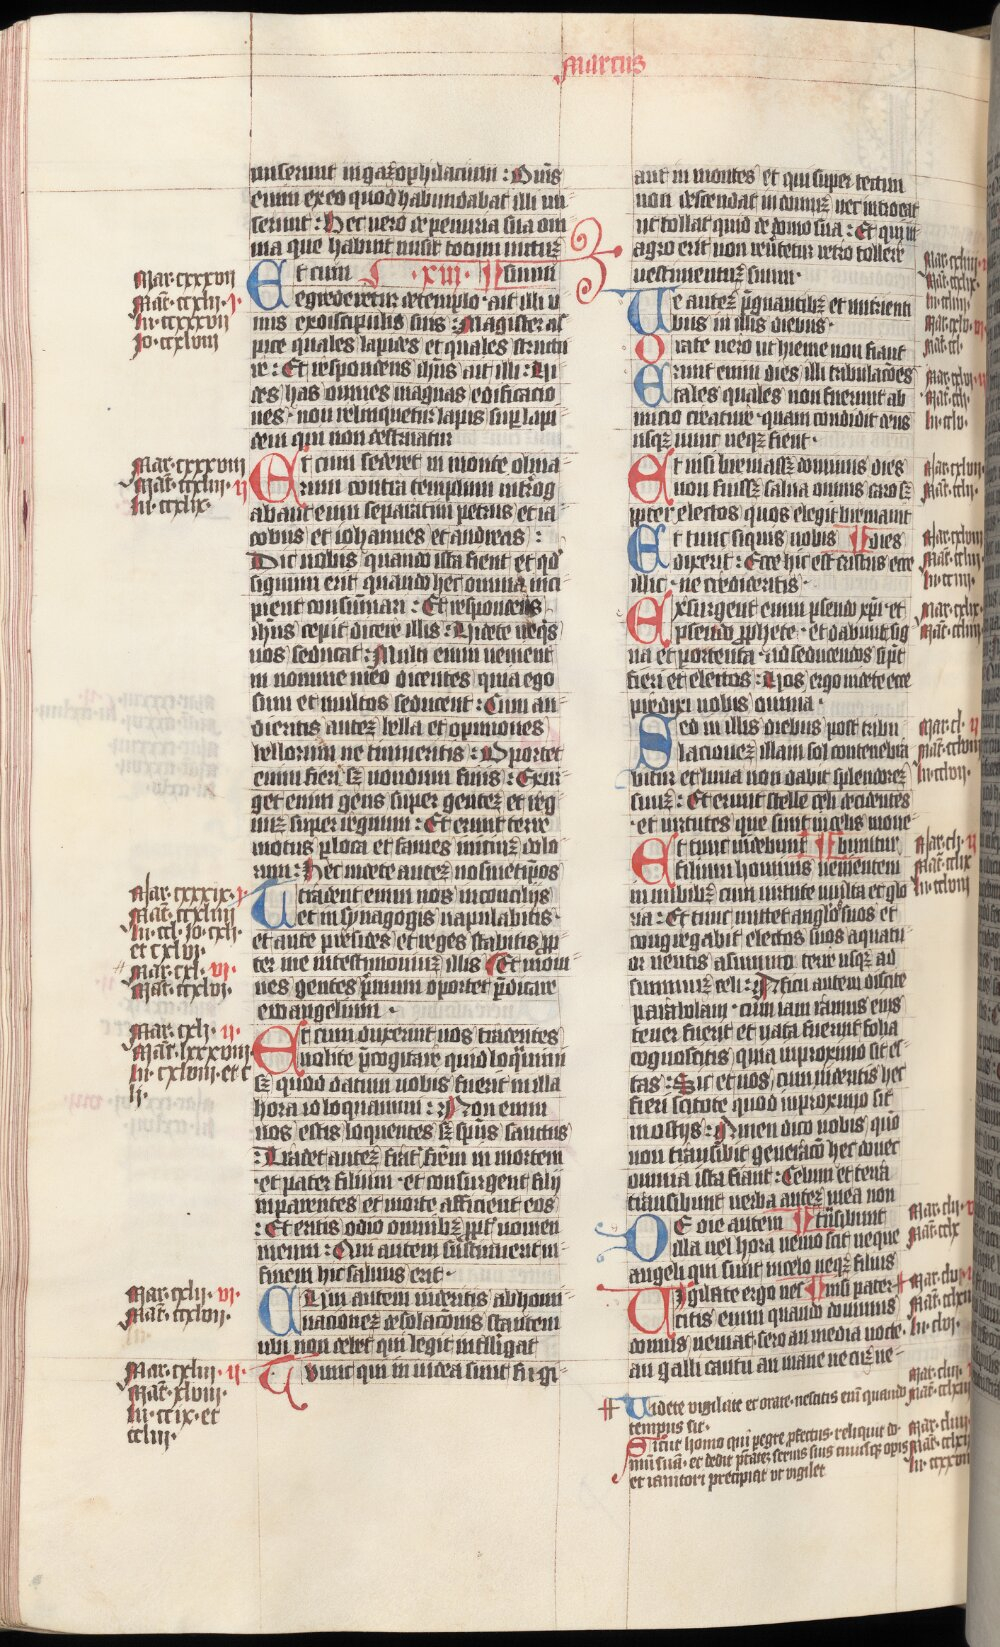 Marcus
miserunt in gazophilacium : Om̄s
enim ex eo quod habundabat illi mi
serunt : Hec vero de penuria sua om
nia que habuit misit totum uictuȝ
Et cum · xiii · ¶ suum
egrederetur de templo · ait illi u
nus ex discipulis suis : Magister as
pice quales lapides et quales structu
re : Et respondens ihūs ait illi : Ui
des has omnes magnas edificacio
nes · non relinquetur lapis sup lapi
dem qui non destruatur
Et cum sederet in monte oliua
rum contra templum int̄rog
abant eum separatim petrus et ia
cobus et iohannes et andreas :
Dic nobis quando ista fient et qd̄
signum erit quando hec omnia inci
pient consūmari : Et respondens
ihūs cepit dicere illis : Uidete neqͥs
uos seducat : Multi enim uenient
in nomine meo dicentes quia ego
sum et multos seducent : Cum au
dieritis auteȝ bella et opiniones
bellorum ne timueritis : Oportet
enim fieri sȝ nondum finis : Exur
get enim gens super genteȝ et reg
nuȝ super regnum : Et erunt terre
motus p loca et fames initiuȝ dolo
rum : Hec uidete autez uosmetip̄os
Tradent enim uos in concilijs
et in synagogis uapulabitis ·
et ante presides et reges stabitis pp
ter me in testimoniuȝ illis ¶ Et in om
nes gentes p̄mum oportet p̄dicare
ewangelium ·
Et cum duxerint uos tradentes
nolite p̄cogitare quid loq̄mini
sȝ quod datum uobis fuerit in illa
hora id loquamini : Non enim
uos estis loquentes sȝ spūs sanctus
: Tradet auteȝ frat̄ fr̄em in mortem
· et pater filium · et consurgent filij
in parentes et morte afficient eos
: Et eritis odio omnibȝ ppt̄ nomen
meum : Qui autem sustinuerit in
finem hic saluus erit ·
Cum autem uideritis abhomi
nacioneȝ desolac̄ōnis stantem
ubi non debet qui legit intelligat
Tunc qui in iudea sunt fugi
ant in montes et qui super tectum
non descendat in domuȝ nec introeat
ut tollat quid de domo sua : Et qui in
agro erit non reūtetur retro tollere
uestimentuȝ suum ·
Ve auteȝ p̄gnantibȝ et nutrienti
bus in illis diebus ·
Orate uero ut hieme non fiant
Erunt enim dies illi tribulac̄ōes
tales quales non fuerunt ab
inicio creature · quam condidit deus
usqȝ nunc neqȝ fient ·
Et nisi breuiassȝ dominus dies
non fuissȝ salua omnis caro sȝ
ppter electos quos elegit breuiauit
Et tunc siquis uobis ¶ dies
dixerit : Ecce hic est cristus ecce
illic · ne credideritis ·
Exsurgent enim pseudo xp̄i · et
pseudo pphete · et dabunt sig
na et portenta · ad seducendos si p̄t
fieri et electos : Uos ergo uidete ecce
predixi uobis omnia ·
Sed in illis diebus post tribu
lacioneȝ illam sol contenebra
bitur et luna non dabit splendoreȝ
suuȝ : Et erunt stelle celi decidentes
· et uirtutes que sunt in celis moue
Et tunc uidebunt ¶ buntur
filium hominis uenientem
in nubibȝ cum uirtute multa et glo
ria : Et tunc mittet angl̄os suos et
congregabit electos suos a quatu
or uentis a summo terre usqȝ ad
summuȝ celi : A ficu autem discite
parabolam · cum iam ramus eius
tener fuerit et nata fuerint folia
cognoscitis quia in proximo sit es
tas : Sic et uos cum uideritis hec
fieri scitote quod in proximo sit
in ostijs : Amen dico uobis qm̄
non transibit generac̄o hec donec
omnia ista fiant : Celum et terra
transibunt uerba auteȝ mea non
De die autem ¶ t̄nsibunt
illa uel hora nemo scit neque
angeli qui sunt in celo neqȝ filius
Uigilate ergo nes ¶ nisi pater
citis enim quando dominus
domus ueniat · sero an media nocte ·
an galli cantu an mane ne cuȝ ue
Uidete vigilate et orate · nescitis eni quando
tempus sit ·
Sicut homo qui pegre pfectus · reliquit do
mū suā · et dedit p̄tateȝ seruis suis cuiusqȝ opis
et ianitori precipiat ut vigilet
Mar · cxxxvii
Mat̄ · ccxlii · i ·
lu · ccxxxvii
Jo · ccxlviii
Mar · cxxxviii
Mat̄ · ccxliii · ii
lu · ccxlix ·
Mar · cxxxix · i ·
Mat̄ · ccxliiii
lu · ccl · Jo · cxli ·
et cxlvi ·
Mar · cxl · vi ·
Mat̄ · ccxlvi ·
Mar · cxli · ii ·
Mat̄ · lxxxviii
lu · cxlviii · et c
li ·
Mar · cxlii · vi ·
Mat̄ · ccxlvii ·
Mar · cxliii · ii ·
Mat̄ · xlviii ·
lu · ccix · et
ccliii ·